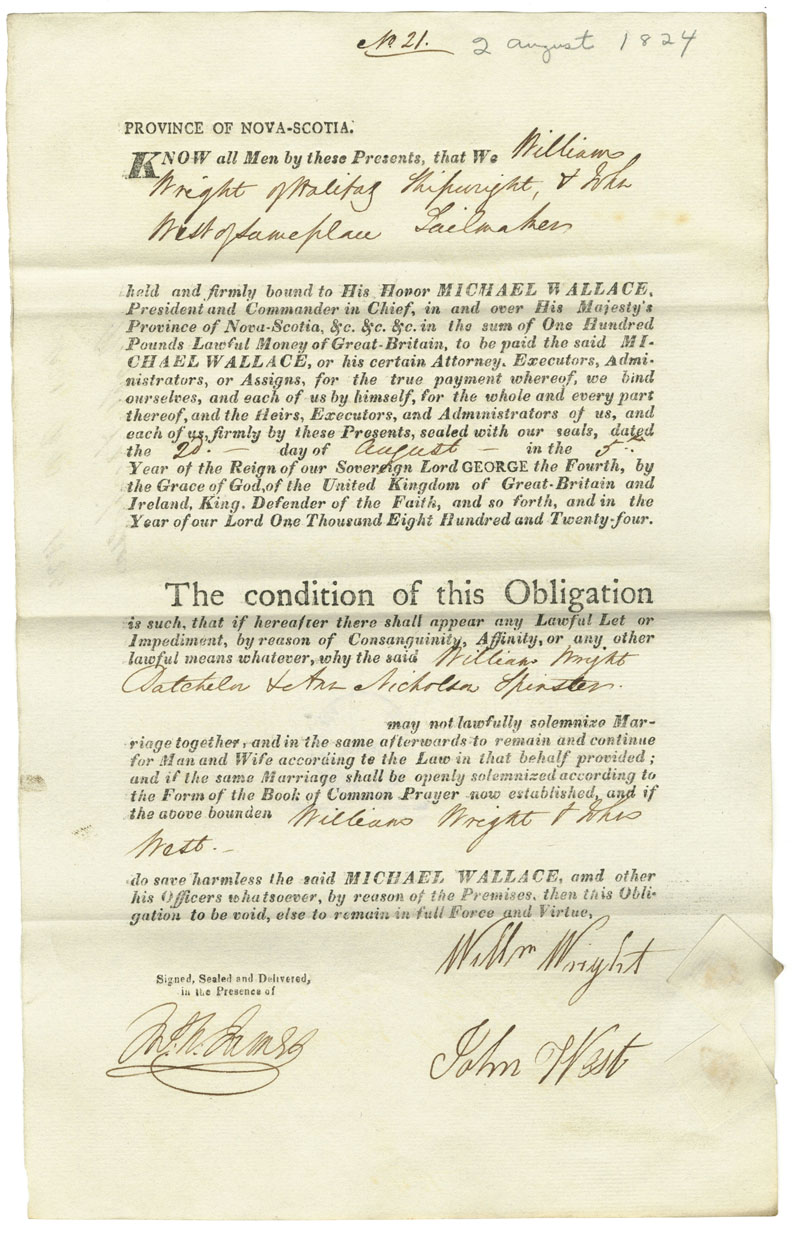 No 21. 2 august 1824
PROVINCE OF NOVA-SCOTIA.
KNOW all Men by these Presents, that We William
Wright of Halifax Shipwright, & John
West of same place Sailmaker
held and firmly bound to His Honor MICHAEL WALLACE,
President and Commander in Chief, in and over His Majesty's
Province of Nova-Scotia, &c. &c. &c. in the sum of One Hundred
Pounds Lawful Money of Great-Britain, to be paid the said MI-
CHAEL WALLACE, or his certain Attorney, Executors, Admi-
nistrators, or Assigns, for the true payment whereof, we bind
ourselves, and each of us by himself, for the whole and every part
thereof, and the Heirs, Executors, and Administrators of us, and
each of us, firmly by these Presents, sealed with our seals, dated
the 2d. — day of August — in the 5th
Year of the Reign of our Sovereign Lord GEORGE the Fourth, by
the Grace of God, of the United Kingdom of Great-Britain and
Ireland, King, Defender of the Faith, and so forth, and in the
Year of our Lord One Thousand Eight Hundred and Twenty-four.
The condition of this Obligation
is such, that if hereafter there shall appear any Lawful Let or
Impediment, by reason of Consanguinity, Affinity, or any other
lawful means whatever, why the said William Wright
Batchelor & Ann Nicholson Spinster.
may not lawfully solemnize Mar-
riage together, and in the same afterwards to remain and continue
for Man and Wife according to the Law in that behalf provided;
and if the same Marriage shall be openly solemnized according to
the Form of the Book of Common Prayer now established, and if
the above bounden William Wright & John
West. —
do save harmless the said MICHAEL WALLACE, amd other
his Officers whatsoever, by reason of the Premises, then this Obli-
gation to be void, else to remain in full Force and Virtue,
Willm Wright
Signed, Sealed and Delivered,
in the Presence of
John West